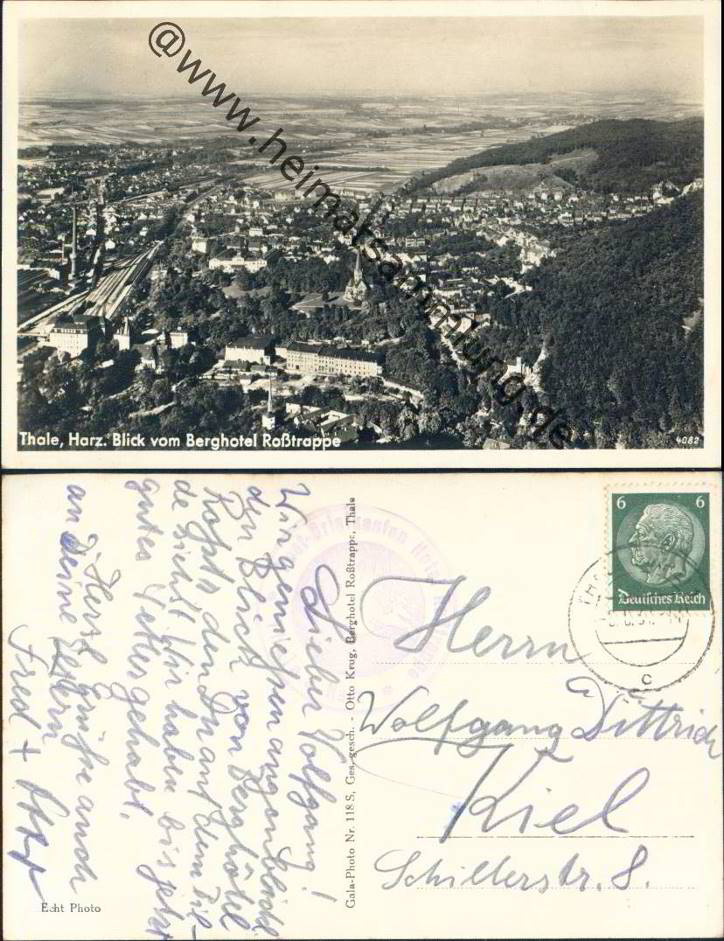 @www.heimatsammlung.de
Thale, Harz. Blick vom Berghotel Roßtrappe
4082
6 6
Deutsches Reich
Lieber Wolfgang!
Wir genießen augenblickl.
den Blick von Berghôtel
Roßtr. den Du auf dem Bil-
de siehst. Wir haben bis jetzt
gutes Wetter gehabt.
Herzl. Grüße auch
an Deine Eltern
Fred +
Gala-Photo Nr. 118 S, Ges. gesch. - Otto Krug, Berghotel Roßtrappe, Thale
Herrn
Wolfgang Dittrich
Kiel
Schillerstr. 8.
Echt Photo
c